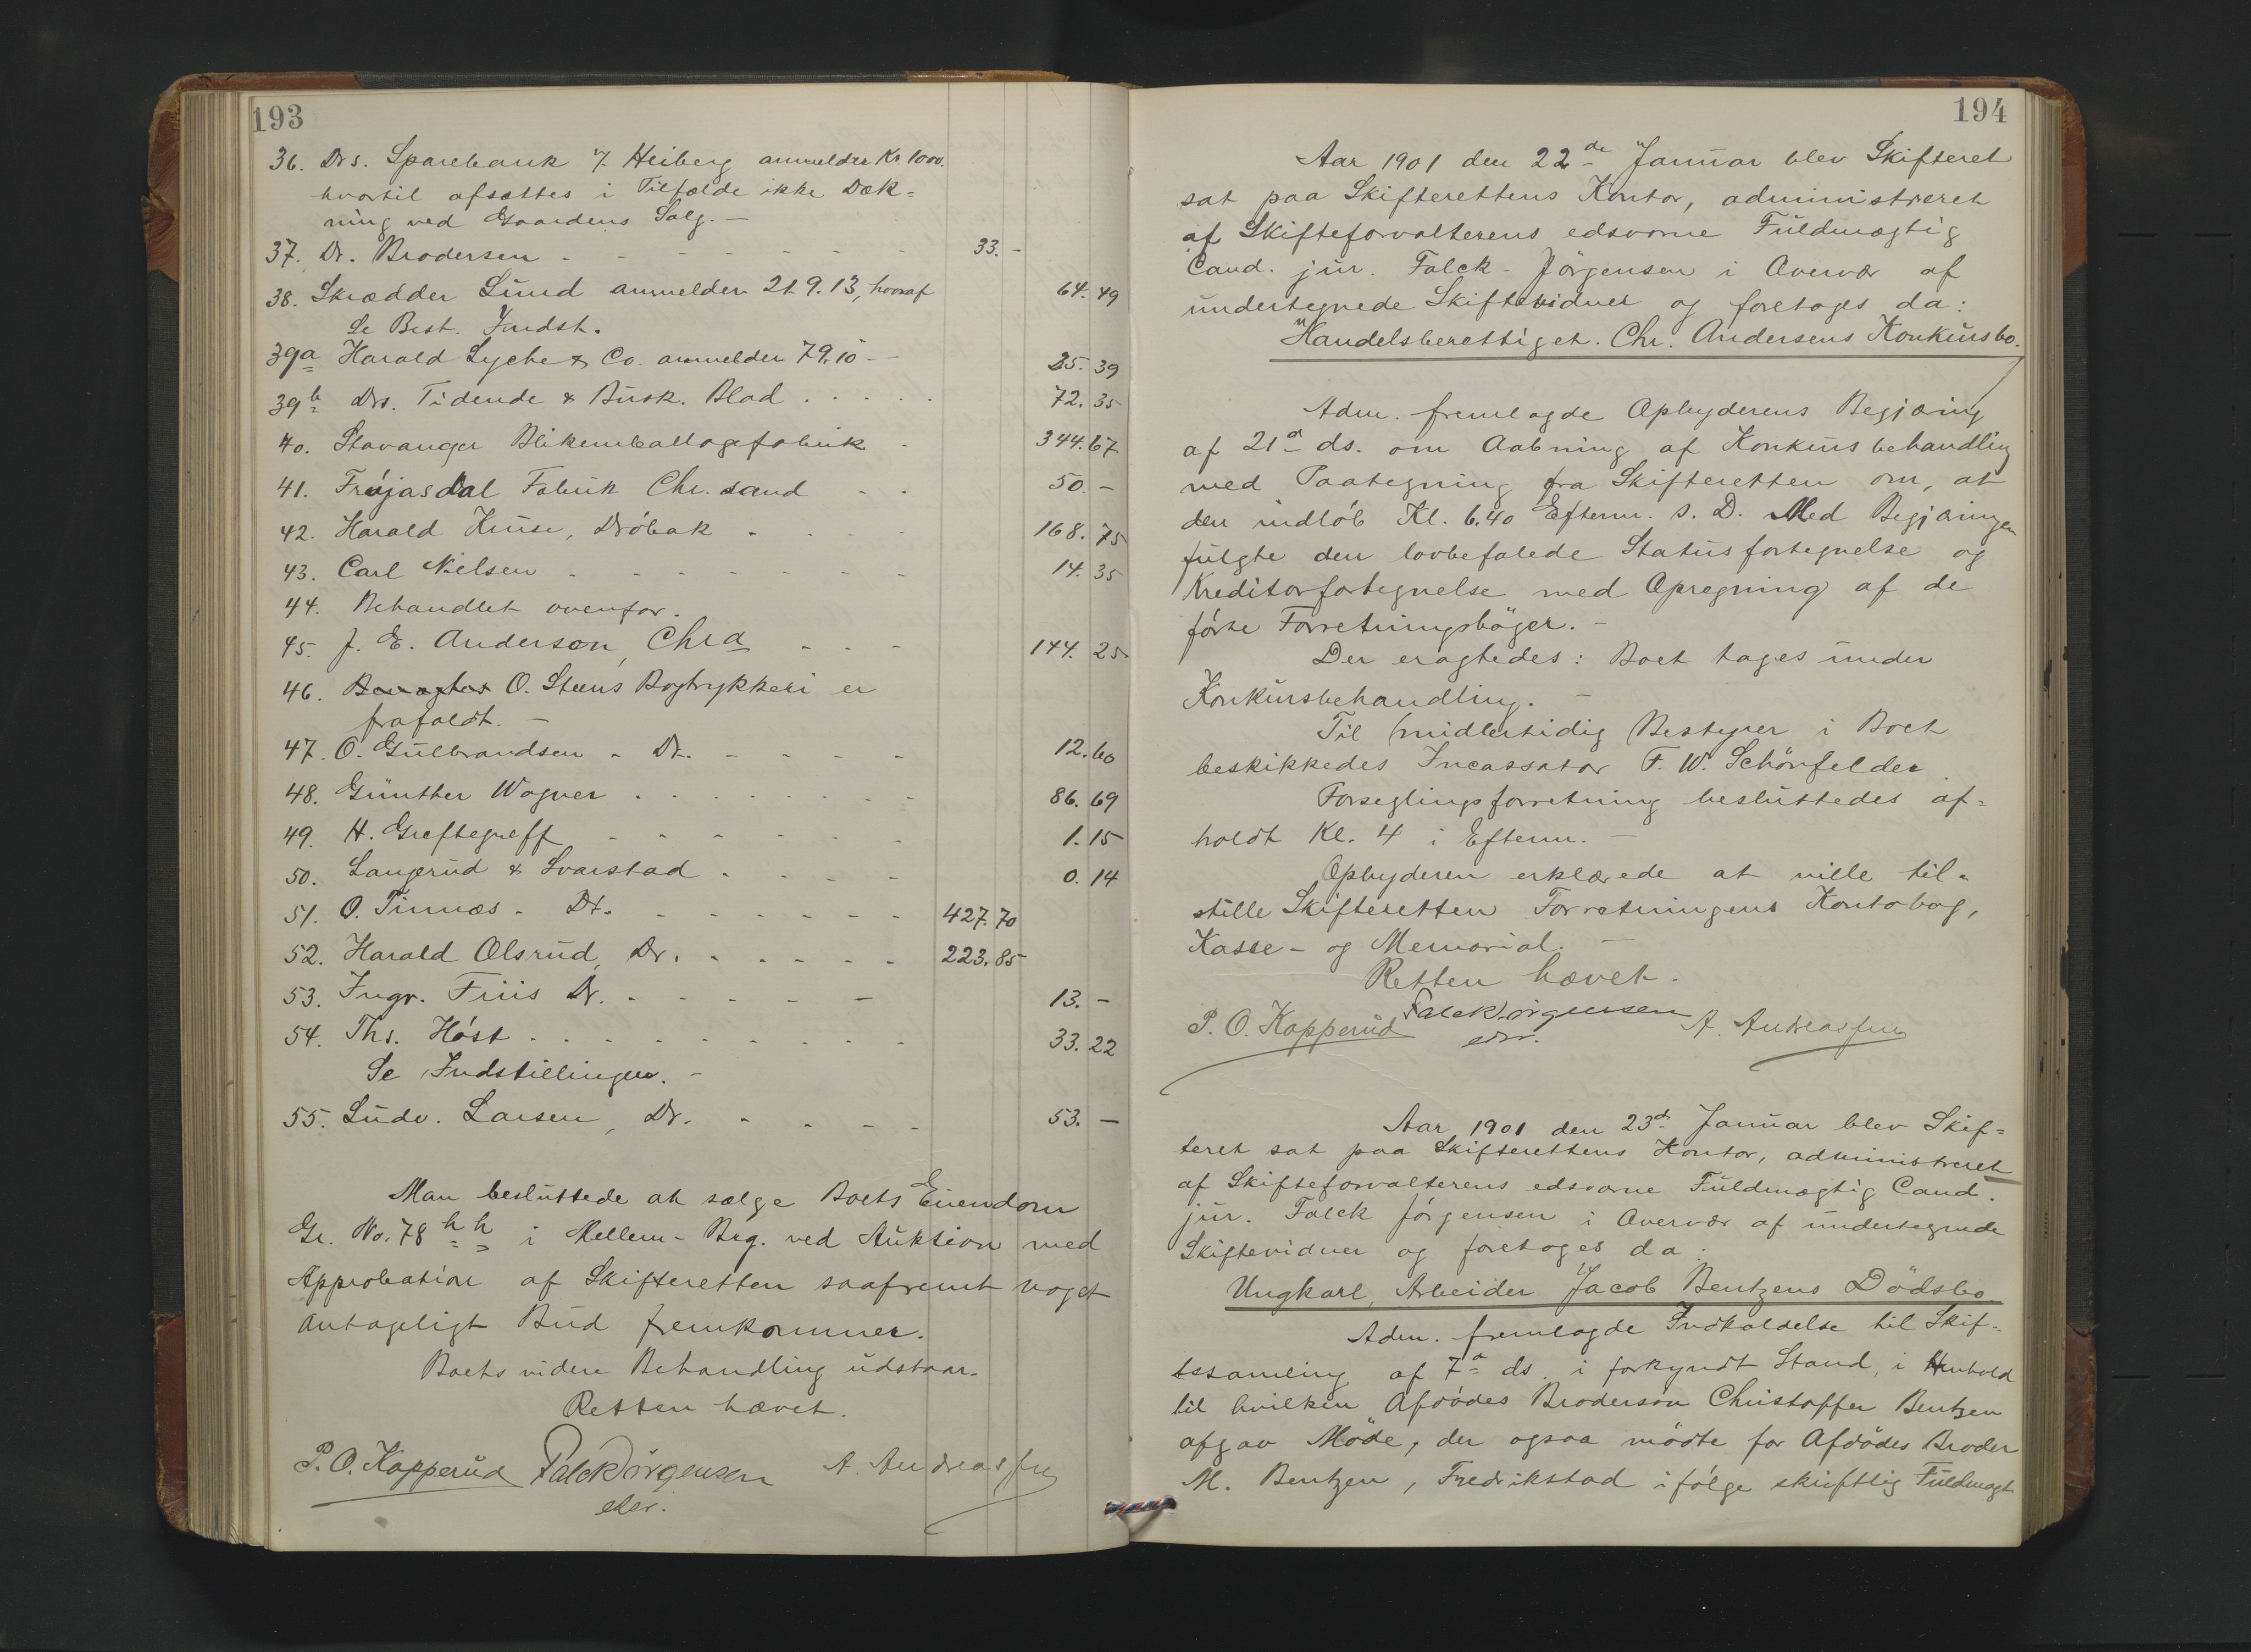 193
36. Drs. Sparebank v/ Heiberg anmelder Kr. 1000.
hvortil afsættes i Tilfælde ikke Dæk=
ning ved Gaardens Salg. -
37. Dr. Brodersen - - - - - - - 33. -
38. Skrædder Lund anmelder 219.13, hvoraf 64. 49
Se Best. Indst.
39a Harald Lyche & Co. anmelder 79.10 - 25. 39
39b Drs. Tidende & Busk. Blad . . . . . 72. 35
40. Stavanger Blikemballagefabrik - 344. 67
41. Frøjasdal Fabrik Chr.sand - - 50. -
42. Harald Kruse, Drøbak - - - - 168. 75
43. Carl Nielsen - - - - - - - - 14. 35
44. Behandlet ovenfor.
45. J. E. Anderson, Chra - - - 144. 25
46. O. Steens Bogtrykkeri er
frafaldt. -
47. O. Gulbrandsen - Dr. - - - - - 12. 60
48. Günther Wagner . . . . . . . . 86. 69
49. H. Greftegreff - - - - - - - 1. 15
50. Langerud & Svarstad - - - - 0. 14
51. O. Tinnæs - Dr. - - - - - - - 427. 70
52. Harald Olsrud, Dr. - - - - - - 223. 85
53. Ingr. Friis Dr. - - - - - - 13. -
54. Ths. Høst - - - - - - - - - - 33. 22
Se Indstillingen. -
55. Ludv. Larsen, Dr. - - - - - 53. -
Man besluttede at sælge Boets Eiendom
Gr. No. 78 h h i Mellem-Brg. ved Auktion med
Approbation af Skifteretten saafremt noget
antageligt Bud fremkommer.
Boets videre Behandling udstaar.
Retten hævet.
P. O. Kopperud Falck Jørgensen A. Andreassen
edsv.
194
Aar 1901 den 22de Januar blev Skifteret
sat paa Skifterettens Kontor, administreret
af Skifteforvalterens edsvorne Fuldmægtig
Cand. jur. Falck-Jørgensen i Overvær af
undertegnede Skiftevidner og foretoges da:
Handelsberettiget. Chr. Andersens Konkursbo.
Adm. fremlagde Opbyderens Begjæring
af 21d ds. om Aabning af Konkursbehandling
med Paategning fra Skifteretten om, at
den indløb Kl. 6.40 Efterm. s. D. Med Begjæringen
fulgte den lovbefalede Statusfortegnelse og
Kreditorfortegnelse med Opregning af de
førte Forretningsbøger. -
Der eragtedes: Boet tages under
Konkursbehandling. -
Til midlertidig Bestyrer i Boet
beskikkedes Incassator F. W. Schönfelder.
Forseglingsforretning besluttedes af=
holdt Kl. 4 i Efterm. -
Opbyderen erklærede at ville til=
stille Skifteretten Forretningens Kontobog,
Kasse- og Memorial. -
Retten hævet.
P. O. Kopperud Falck Jørgensen A. Andreassen
edsv.
Aar 1901 den 23d Januar blev Skif=
teret sat paa Skifterettens Kontor, administreret
af Skifteforvalterens edsvorne Fuldmægtig Cand.
jur. Falck Jørgensen i Overvær af undertegnede
Skiftevidner og foretoges da:
Ungkarl, Arbeider Jacob Bentzens Dödsbo
Adm. fremlagde Indkaldelse til Skif=
tesamling af 7d ds. i forkyndt Stand, i Henhold
til hvilken Afdødes Brodersøn Christoffer Bentzen
afgav Møde, der ogsaa mødte for Afdødes Broder
M. Bentzen, Fredrikstad ifølge skriftlig Fuldmagt